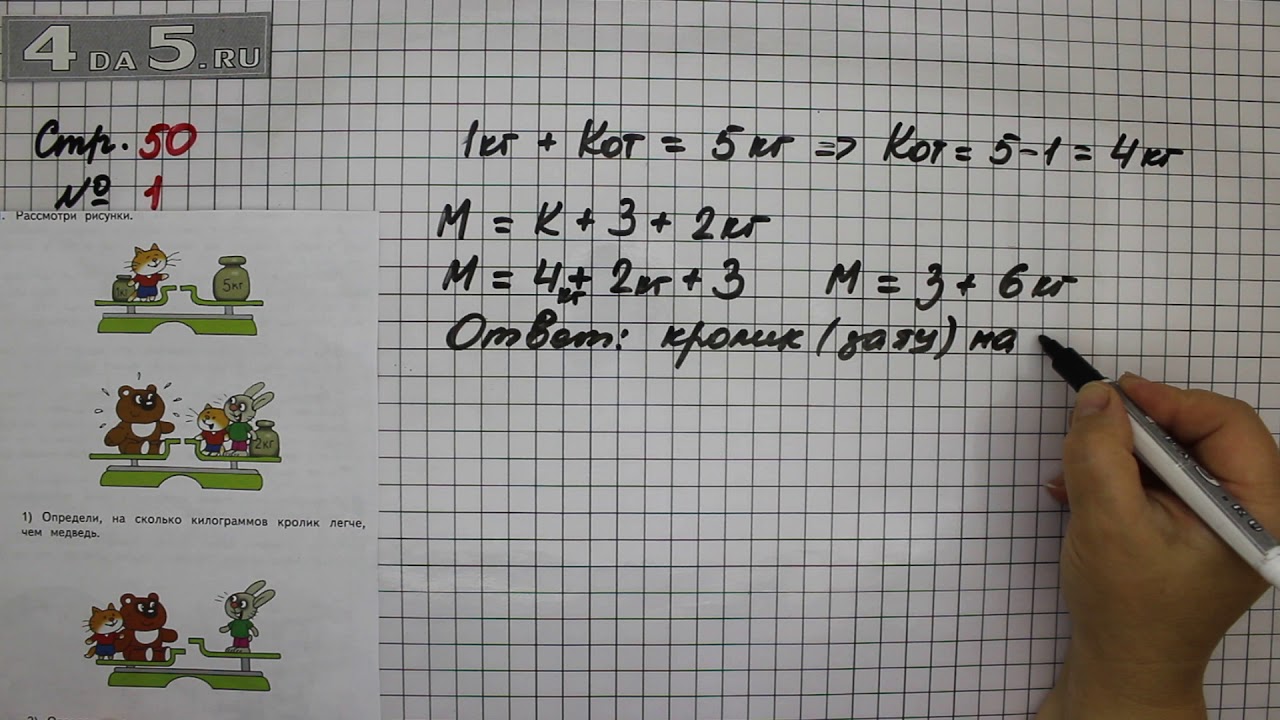 4DA5.RU
Стр. 50
№ 1
1кг + Кот = 5кг => Кот = 5-1 = 4кг
М = К + З + 2кг
М = 4кг + 2кг + З М = З + 6кг
Ответ: кролик (заяц) на
Рассмотри рисунки.
1кг
5кг
2кг
1) Определи, на сколько килограммов кролик легче,
чем медведь.